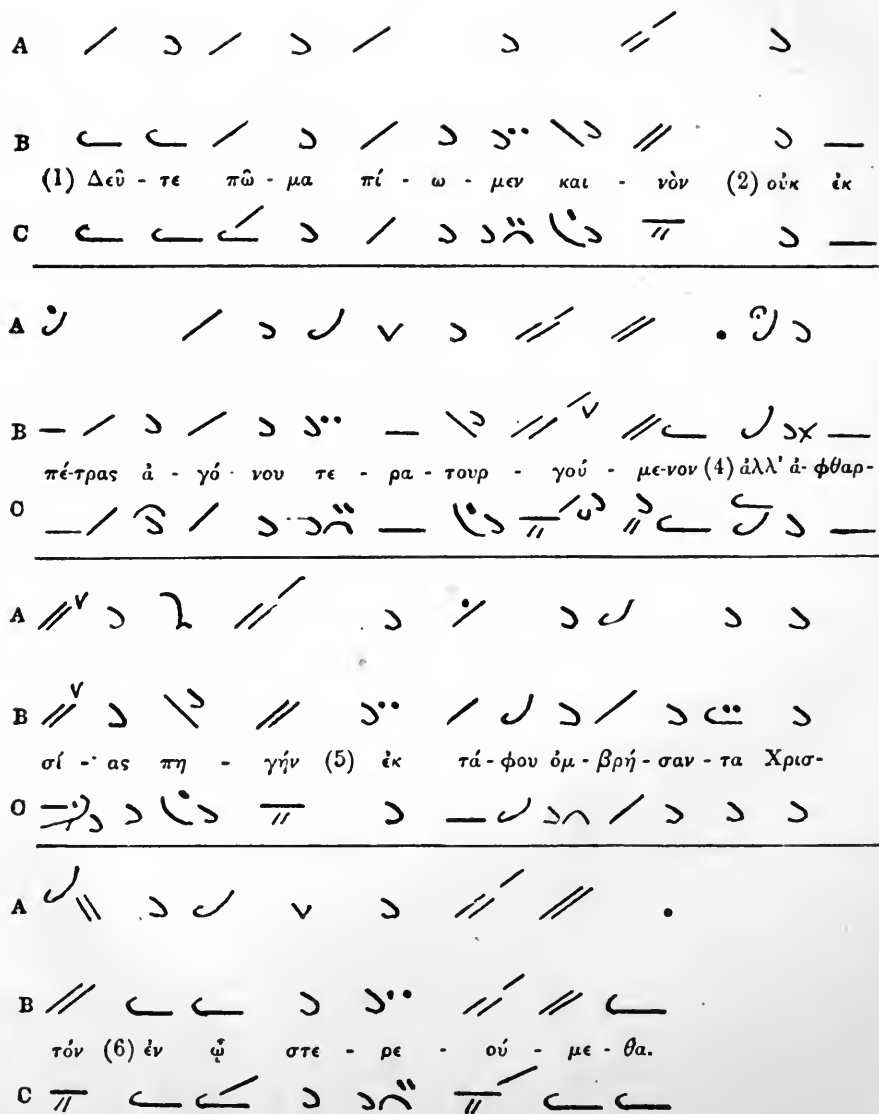 A
B
(1) Δεῦ - τε πῶ - μα πί - ω - μεν και - νὸν (2) οὐκ ἐκ
C
A
B
πέ-τρας ἀ - γό - νου τε - ρα - τουρ - γού - με-νον (4) ἀλλ' ἀ- φθαρ-
C
A
B
σί - ας πη - γήν (5) ἐκ τά - φου ὀμ - βρή - σαν - τα Χρισ-
C
A
B
τόν (6) ἐν ᾧ στε - ρε - ού - με - θα.
C